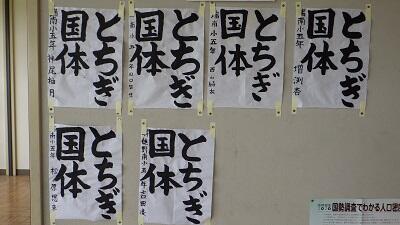 とちぎ
国体
南小五年 神尾柚月
とちぎ
国体
とちぎ
国体
南小五年
とちぎ
国体
南小五年 増渕杏
とちぎ
国体
南小五年
とちぎ
国体
南小五年 吉田
国勢調査でわかる人口密